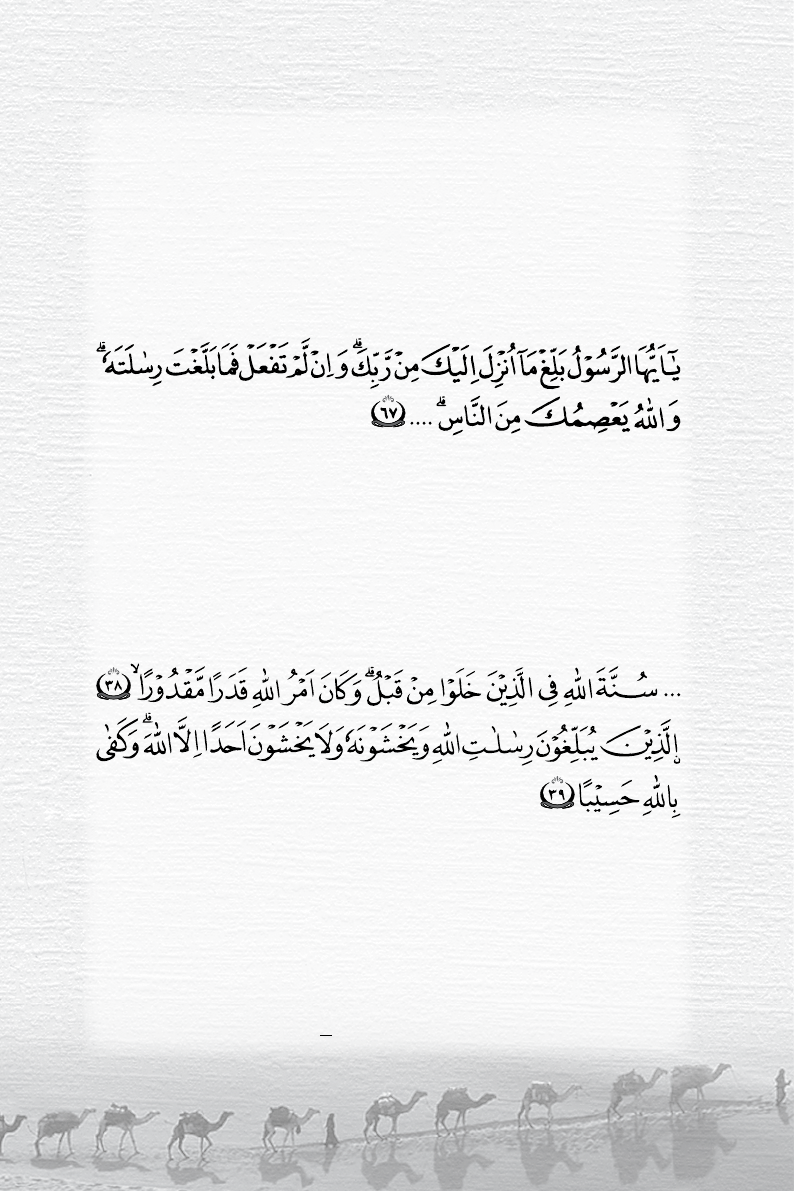 يٰۤاَيُّهَا الرَّسُوْلُ بَلِّغْ مَاۤ اُنْزِلَ اِلَيْكَ مِنْ رَّبِّكَ ؕ وَ اِنْ لَّمْ تَفْعَلْ فَمَا بَلَّغْتَ رِسٰلَتَهٗ ؕ
وَ اللّٰهُ يَعْصِمُكَ مِنَ النَّاسِ ؕ .... ﴿٦٧﴾
... سُنَّةَ اللّٰهِ فِی الَّذِيْنَ خَلَوْا مِنْ قَبْلُ ؕ وَ كَانَ اَمْرُ اللّٰهِ قَدَرًا مَّقْدُوْرًا ۙ﴿٣٨﴾
اۨلَّذِيْنَ يُبَلِّغُوْنَ رِسٰلٰتِ اللّٰهِ وَ يَخْشَوْنَهٗ وَ لَا يَخْشَوْنَ اَحَدًا اِلَّا اللّٰهَ ؕ وَ كَفٰی
بِاللّٰهِ حَسِيْبًا ﴿٣٩﴾